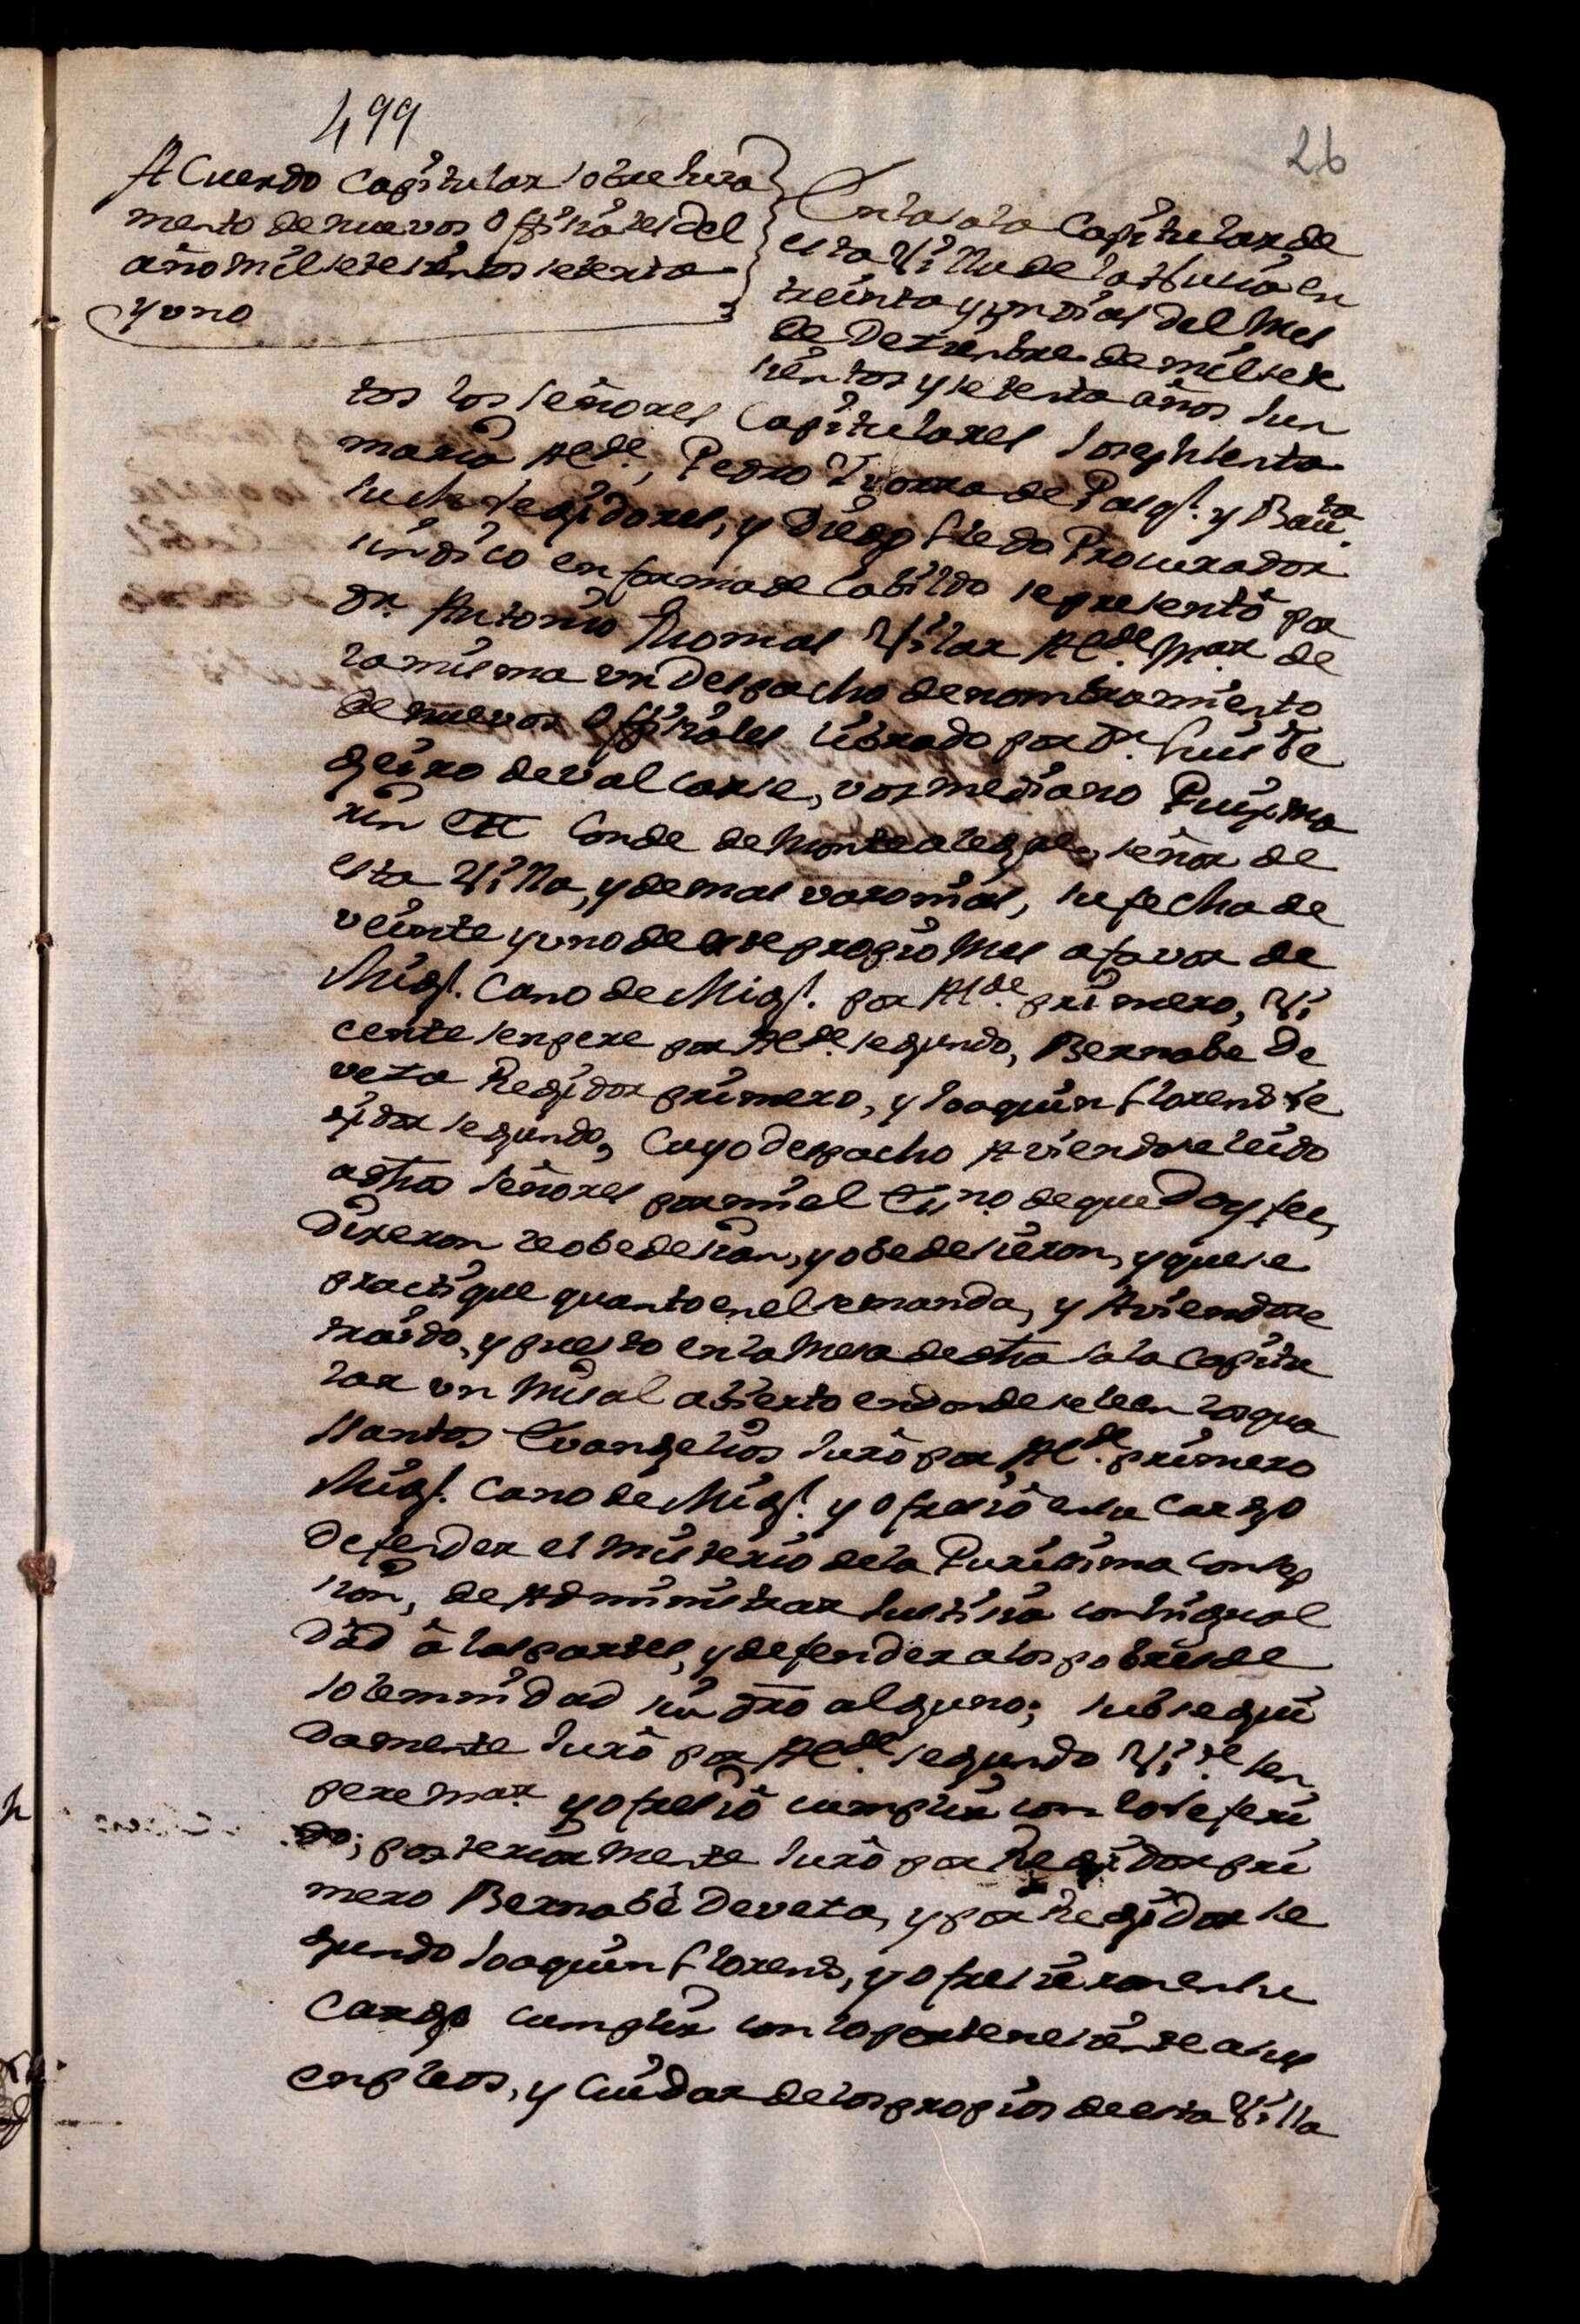 499
26
Acuerdo Capitular sobre Jura
mento de nuevos Offiçiales del
año mil setesientos setenta
y uno
En la sala Capitular de
esta Villa de la Nuçia en
treinta y un dias del Mes
de Dezienbre de mil sete
sientos y setenta años Jun
tos los señores Capitulares Joseph Senta
maria Alde., Pedro Yvorra de Pasql. y Bauta.
Such Regidores, y Diego Lledo Procurador
sindico en forma de Cabildo se presentó por
Dn. Antonio Thomas Vilar Alde. Mar. de
la misma un Despacho de nombramiento
de nuevos Offiçiales librado por Dn. Luis de
geiro de Valcarse, vosmediano Puixma
rin Etc Conde de Montealegre, señor de
esta Villa, y demas varonias, su fecha de
veinte y uno de este propio Mes a favor de
Migl. Cano de Migl. por Alde. primero, Vi
cente senpere por Alde. segundo, Bernabe De
veza Regidor primero, y Joaquin Llorens Re
gidor segundo, Cuyo despacho Aviendose leido
a dhos señores por mi el Esno. de que Doy fee,
Dixeron le obedesian, y obedesieron, y que se
practique quanto en el se manda, y Aviendose
traido, y puesto en la Mesa de dha sala Capitu
lar un Misal abierto en donde se leen los qua
santos Evangelios Juró por Alde. primero
Migl. Cano de Migl. y ofresió en su Cargo
Defender el misterio de la Purissima Consep
sion, de Administrar Justisia con igual
Dad à las partes, y defender a los pobres de
solemnidad sin dro alguno; subsegui
damente Juró por Alde. segundo Vite. sen
pere mar. y ofresió cumplir con lo referi
do; posteriormente Juró por Regidor pri
mero Bernabé Deveza, y por Regidor se
gundo Joaquin Llorens, y ofresieron en su
Cargo cumplir con lo pertenesiente a sus
enpleos, y Cuidar de los propios de esta Villa